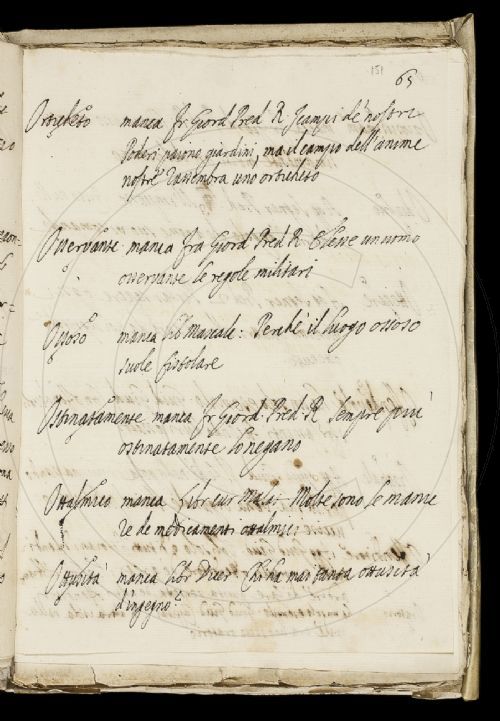 151
65
Orticheto manca Fr. Giord Pred R I campi de' nostri
Poderi paiono giardini, ma il campo dell'anime
nostre rassembra uno orticheto
Osservante manca Fra Giord Pred R Elesse un uomo
osservante le regole militari
Ossoso manca lib Mascalc: Perche il luogo ossoso
suole fistolare
Ostinatamente manca Fr Giord Pred R Sempre piu
ostinatamente lo negano
Ottalmico manca Libr cur Malat Molte sono le manie
re de medicamenti ottalmici
Ottusità manca libr Chi ha mai tanta ottusità
d'ingegno